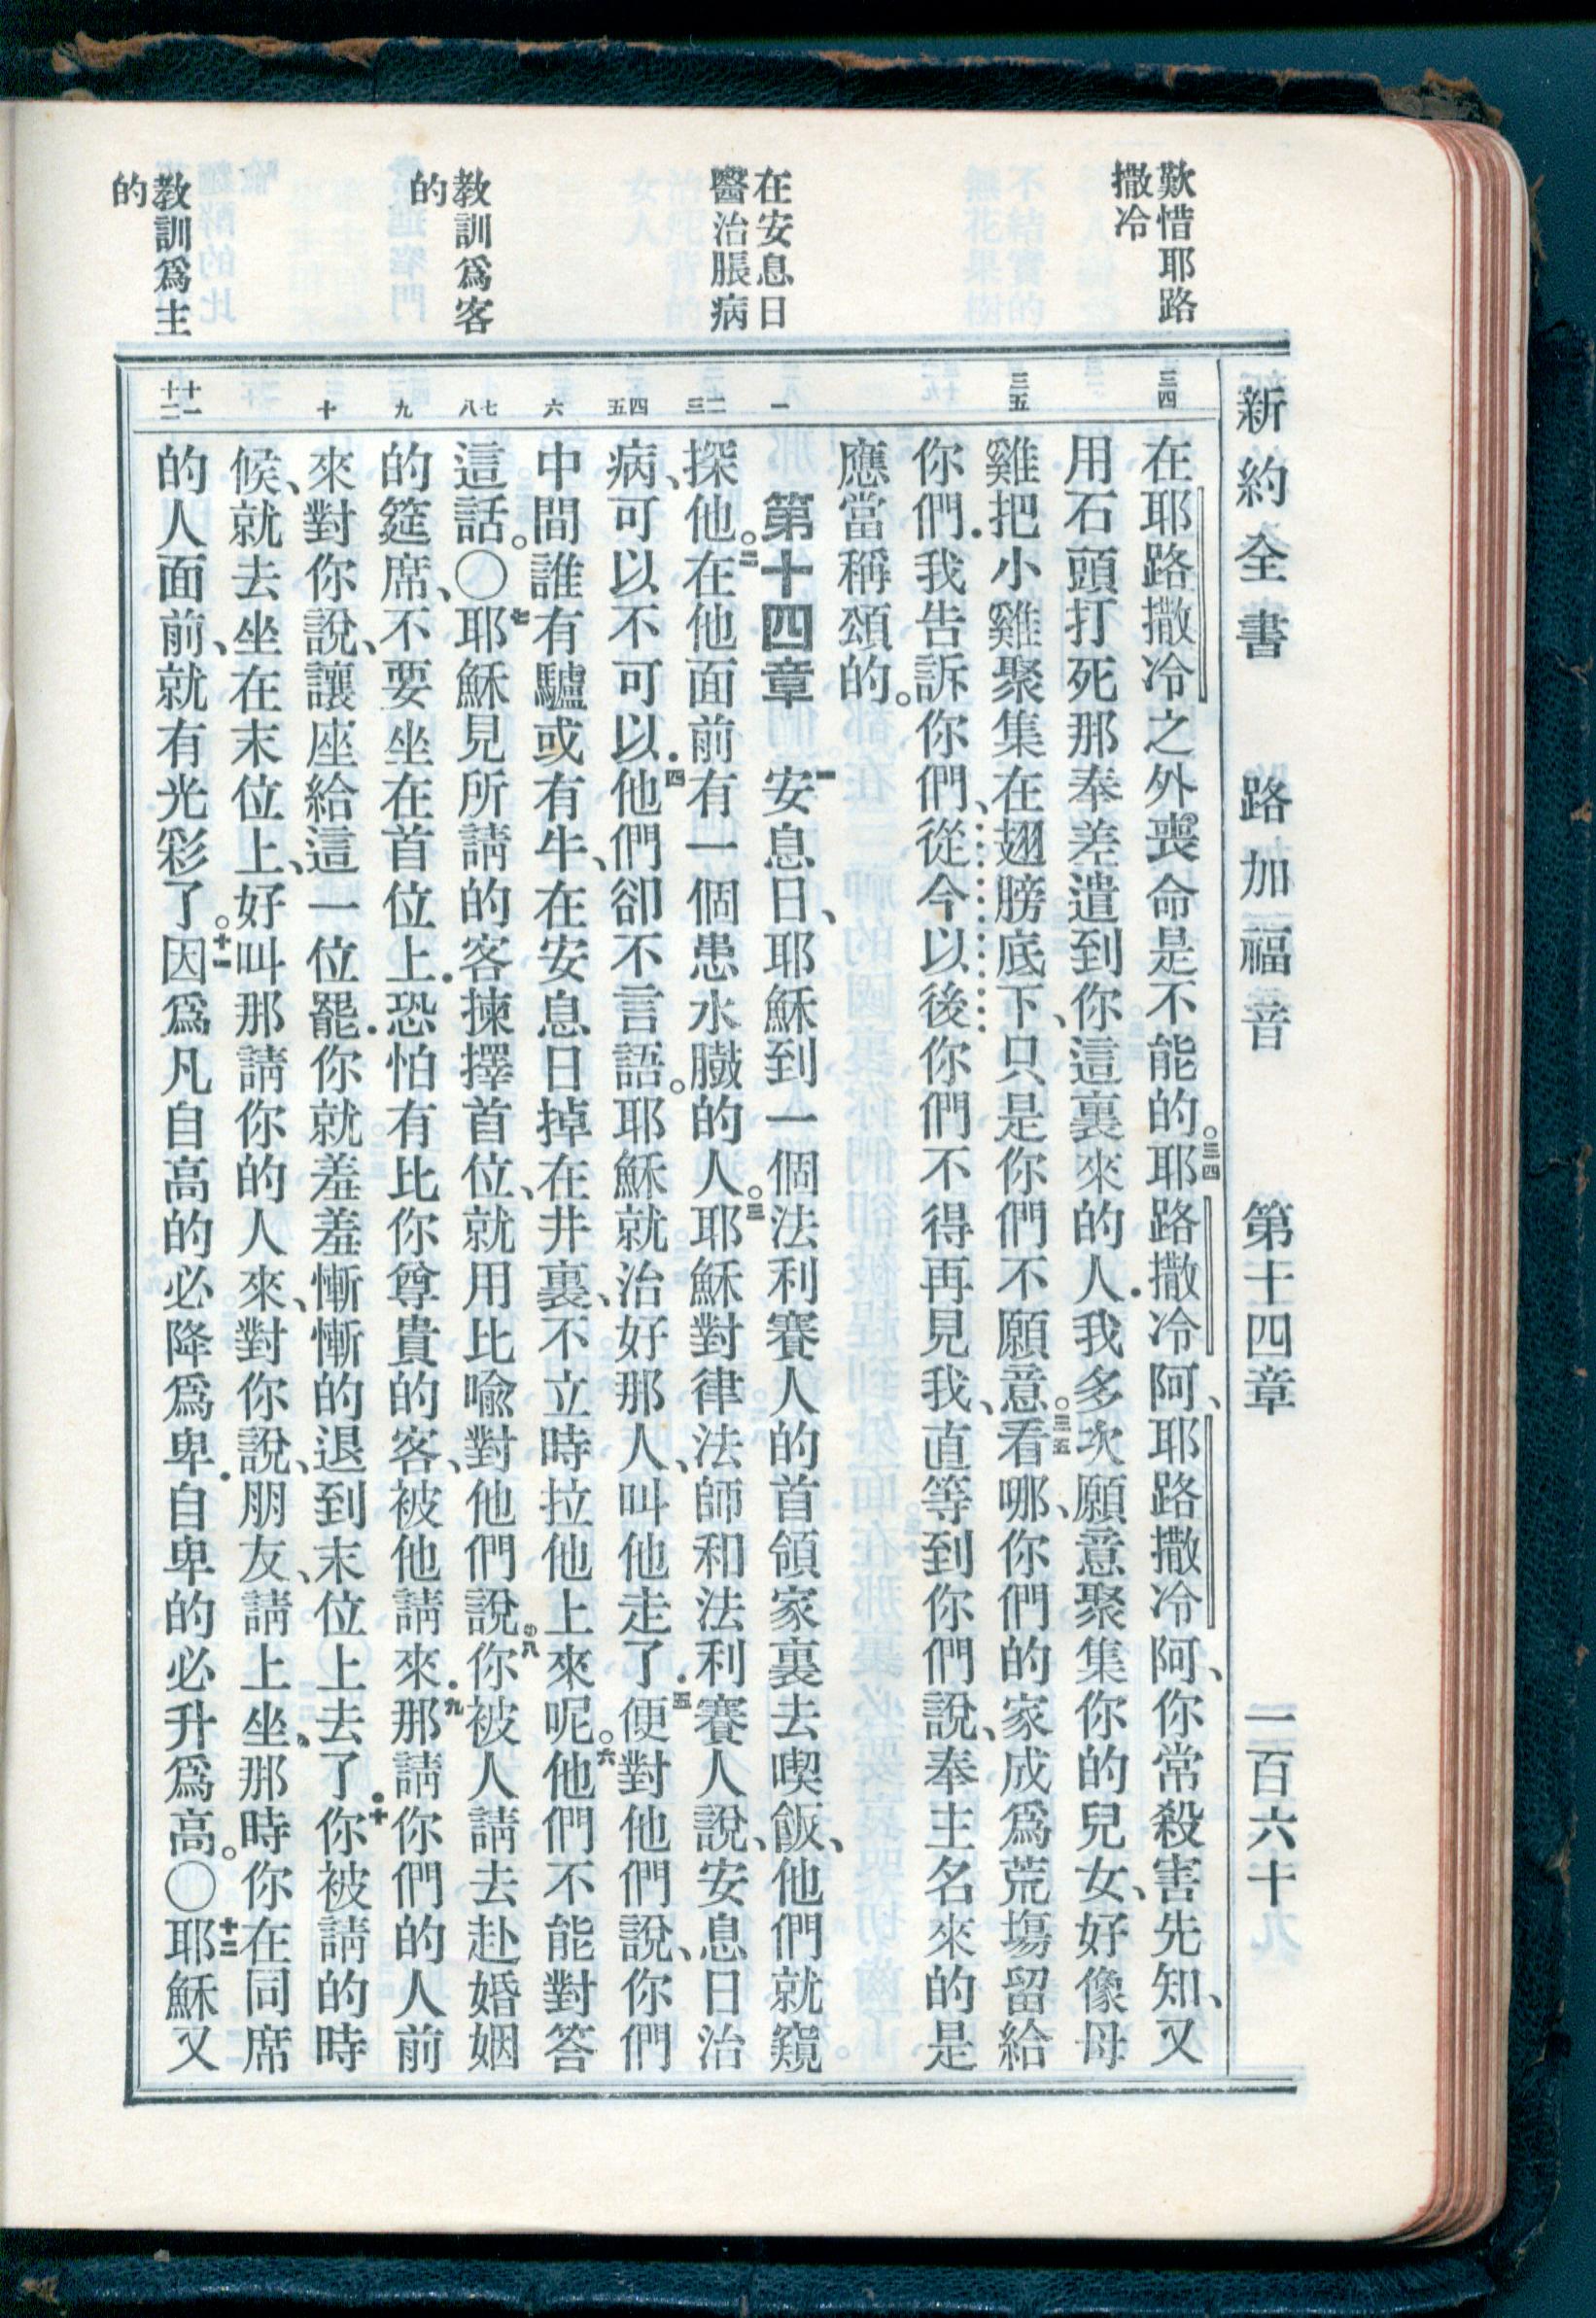 新約全書 路加福音 第十四章 一百六十
歎惜耶路
撒冷
在安息日
醫治脹病
教訓爲客
的
教訓爲主
的
三四
三五
一
二三
四五
六
七八
九
十
十一十二
在耶路撒冷之外喪命是不能的。三四耶路撒冷阿、耶路撒冷阿、你常殺害先知、又
用石頭打死那奉差遣到你這裏來的人．我多次願意聚集你的兒女、好像母
雞把小雞聚集在翅膀底下、只是你們不願意。三五看哪、你們的家成爲荒塲留給
你們．我告訴你們、從今以後你們不得再見我、直等到你們說、奉主名來的是
應當稱頌的。
第十四章 一安息日、耶穌到一個法利賽人的首領家裏去喫飯、他們就窺
探他。二在他面前有一個患水臌的人。三耶穌對律法師和法利賽人說、安息日治
病、可以不可以．四他們卻不言語。耶穌就治好那人、叫他走了．五便對他們說、你們
中間誰有驢或有牛、在安息日掉在井裏、不立時拉他上來呢。六他們不能對答
這話。〇七耶穌見所請的客揀擇首位、就用比喻對他們說、八你被人請去赴婚姻
的筵席、不要坐在首位上．恐怕有比你尊貴的客、被他請來．九那請你們的人前
來對你說、讓座給這一位罷．你就羞羞慚慚的退到末位上去了．十你被請的時
候、就去坐在末位上、好叫那請你的人來、對你說、朋友、請上坐、那時你在同席
的人面前、就有光彩了。十一因爲凡自高的必降爲卑．自卑的必升爲高。〇十二耶穌又